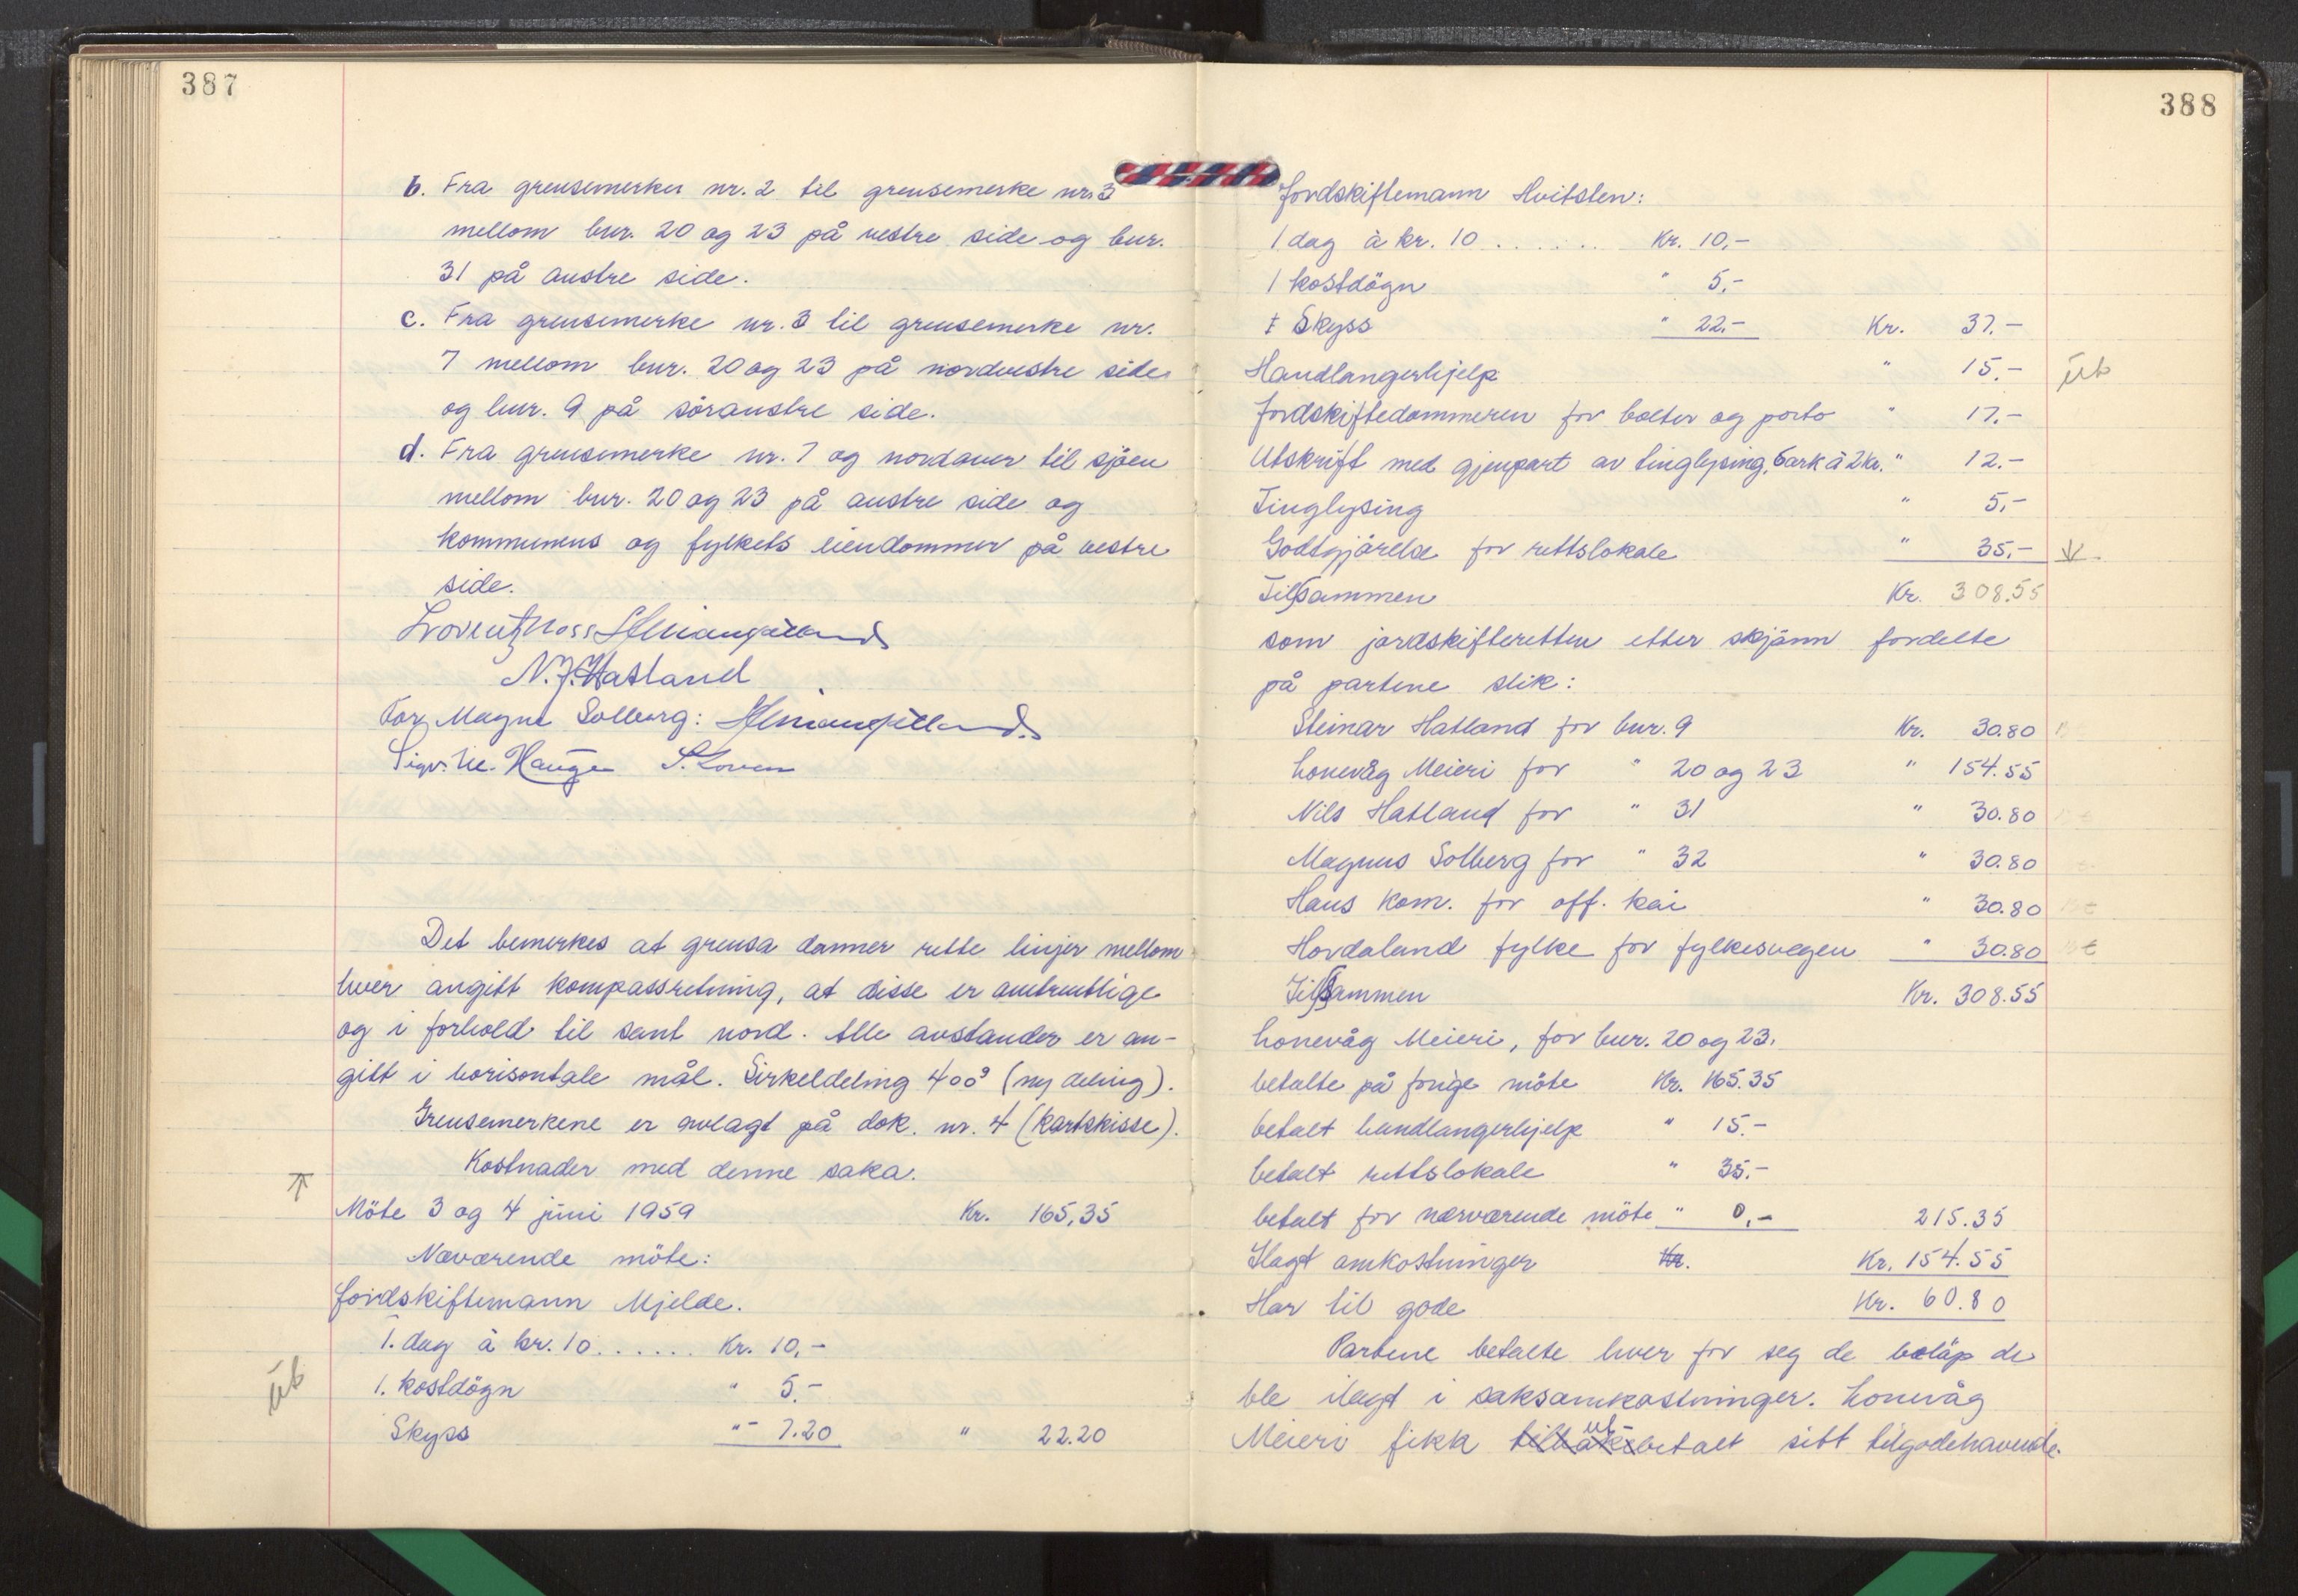 387
b. Fra grensemerker nr. 2 til grensemerke nr. 3
mellom bnr. 20 og 23 på vestre side og bnr.
31 på austre side.
c. Fra grensemerke nr. 3 til grensemerke nr.
7 mellom bnr. 20 og 23 på nordvestre side
og bnr. 9 på söraustre side.
d. Fra grensemerke nr. 7 og nordover til sjöen
mellom bnr. 20 og 23 på austre side og
kommunens og fylkets eiendommer på vestre
side.
Lorentz Moss
N. J. Hatland
For Magne Solberg:
Sigv. M. Hauge
Det bemerkes at grensa danner rette linjer mellom
hver angitt kompassretning, at disse er omtrentlige
og i forhold til sant nord. Alle avstander er an-
gitt i horisontale mål. Sirkeldeling 400g (ny deling).
Grensemerkene er avlagt på dok. nr. 4 (kartskisse).
Kostnader med denne saka.
Möte 3 og 4 juni 1959 Kr. 165,35
Nærværende möte:
Jordskiftemann Mjelde.
1. dag à kr. 10...... Kr. 10,-
1. kostdögn " 5.-
Skyss "- 7.20 " 22.20
388
Jordskiftemann Hvitsten:
1 dag à kr. 10....... Kr. 10,-
1 kostdögn " 5,-
Skyss " 22.- Kr. 37.-
Handlangerhjelp " 15.-
Jordskiftedommeren for bolter og porto " 17.-
Utskrift med gjenpart av tinglysing, 6 ark à 2 kr. " 12.-
Tinglysing " 5,-
Godtgjörelse for rettslokale " 35,-
Tilsammen Kr. 308.55
som jordskifteretten etter skjönn fordelte
på partene slik:
Steinar Hatland for bnr. 9 Kr. 30.80
Lonevåg Meieri for " 20 og 23 " 154.55
Nils Hatland for " 31 " 30.80
Magnus Solberg for " 32 " 30.80
Haus kom. for off. kai " 30.80
Hordaland fylke for fylkesvegen " 30.80
Tilsammen Kr. 308.55
Lonevåg Meieri, for bnr. 20 og 23.
betalte på forrige möte Kr. 165.35
betalt handlangerhjelp " 15.-
betalt rettslokale " 35.-
betalt for nærværende möte " 0,- 215.35
Ilagt omkostninger Kr. Kr. 154.55
Har til gode Kr. 60.80
Partene betalte hver for seg de belöp de
ble ilagt i saksomkostninger. Lonevåg
Meieri fikk tilbake ut-betalt sitt tilgodehavende.